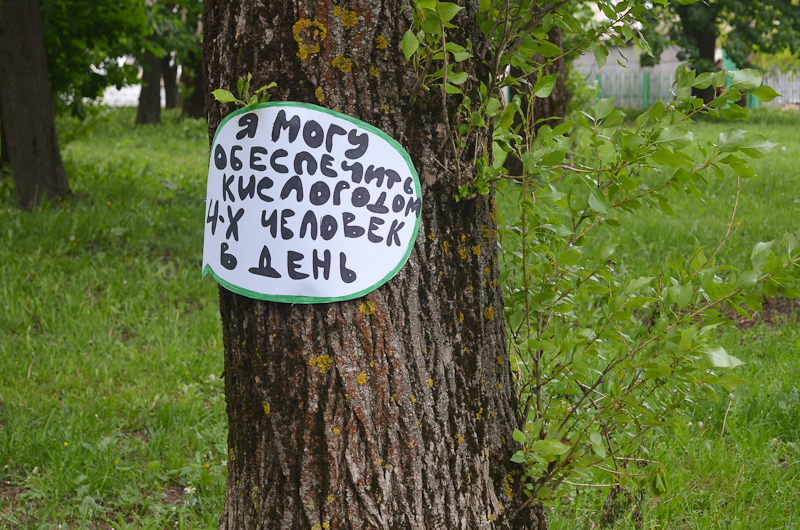 Я МОГУ
ОБЕСПЕЧИТЬ
КИСЛОРОДОМ
4-Х ЧЕЛОВЕК
В ДЕНЬ